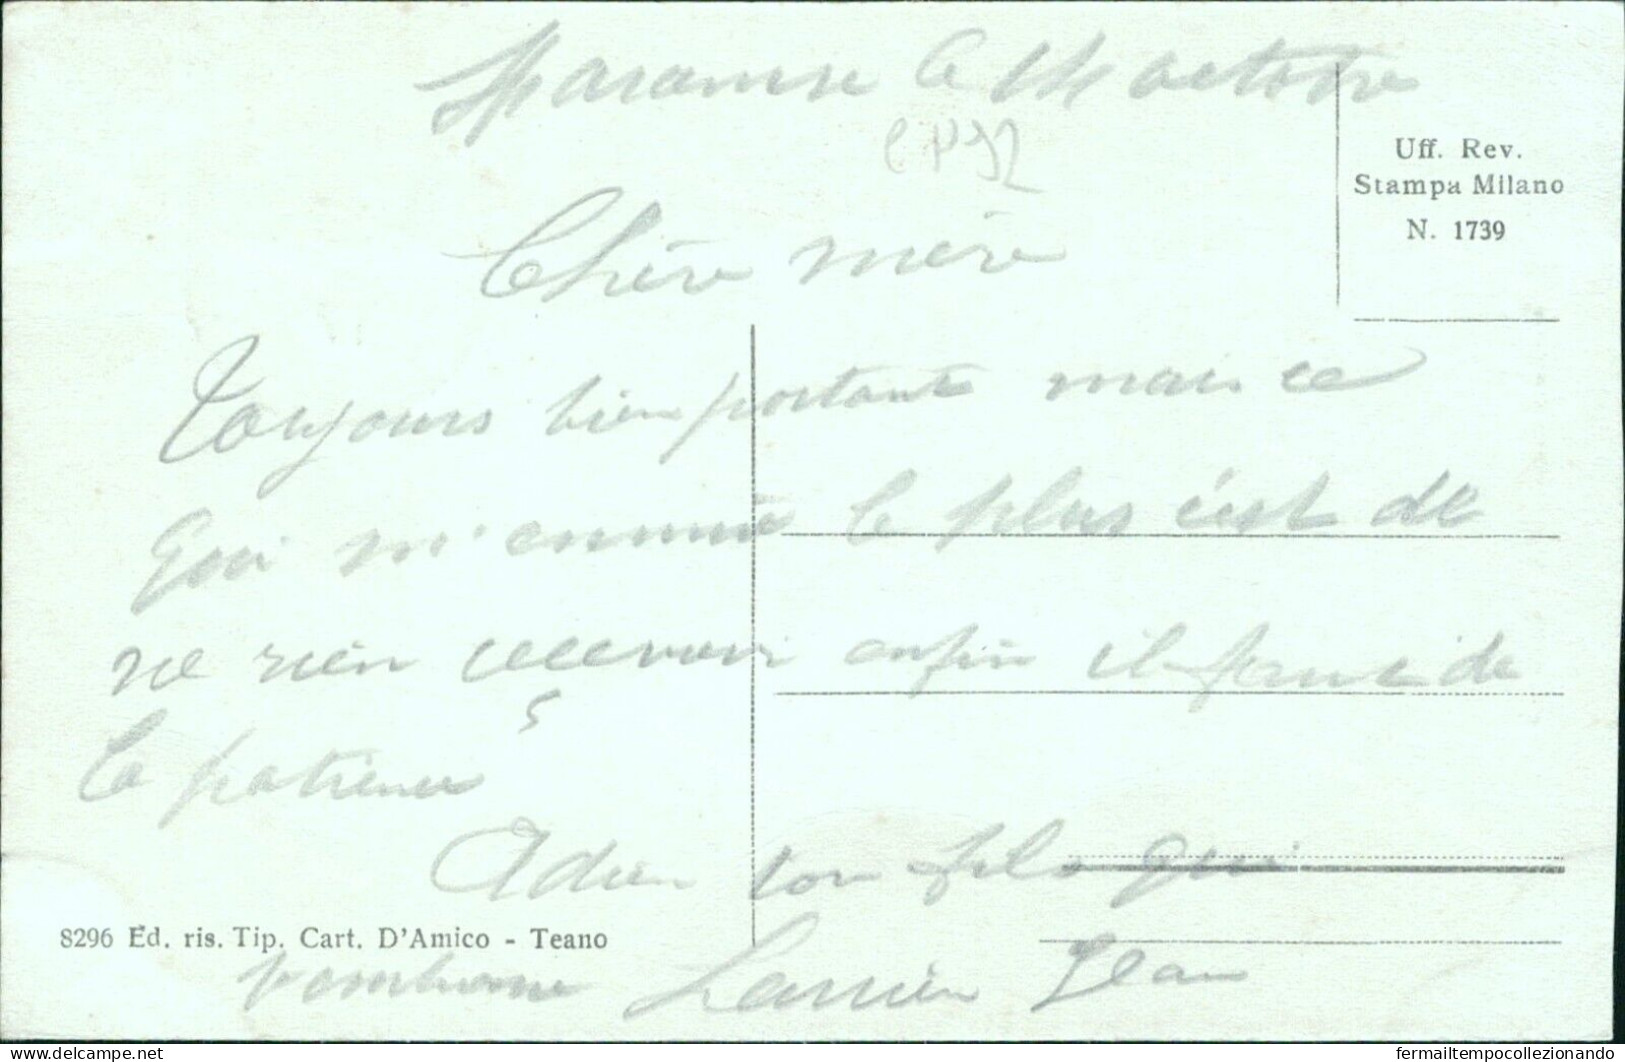 le 14 octobre
CP92
Uff. Rev.
Stampa Milano
N. 1739
Chère mère
Toujours bien portant mais ce
Qui m'ennuie le plus c'est de
ne rien recevoir enfin il faut de
la patience
Adieu ton fils qui
8296 Ed. ris. Tip. Cart. D'Amico - Teano
Jean
fermailtempocollezionando
delcampe.net